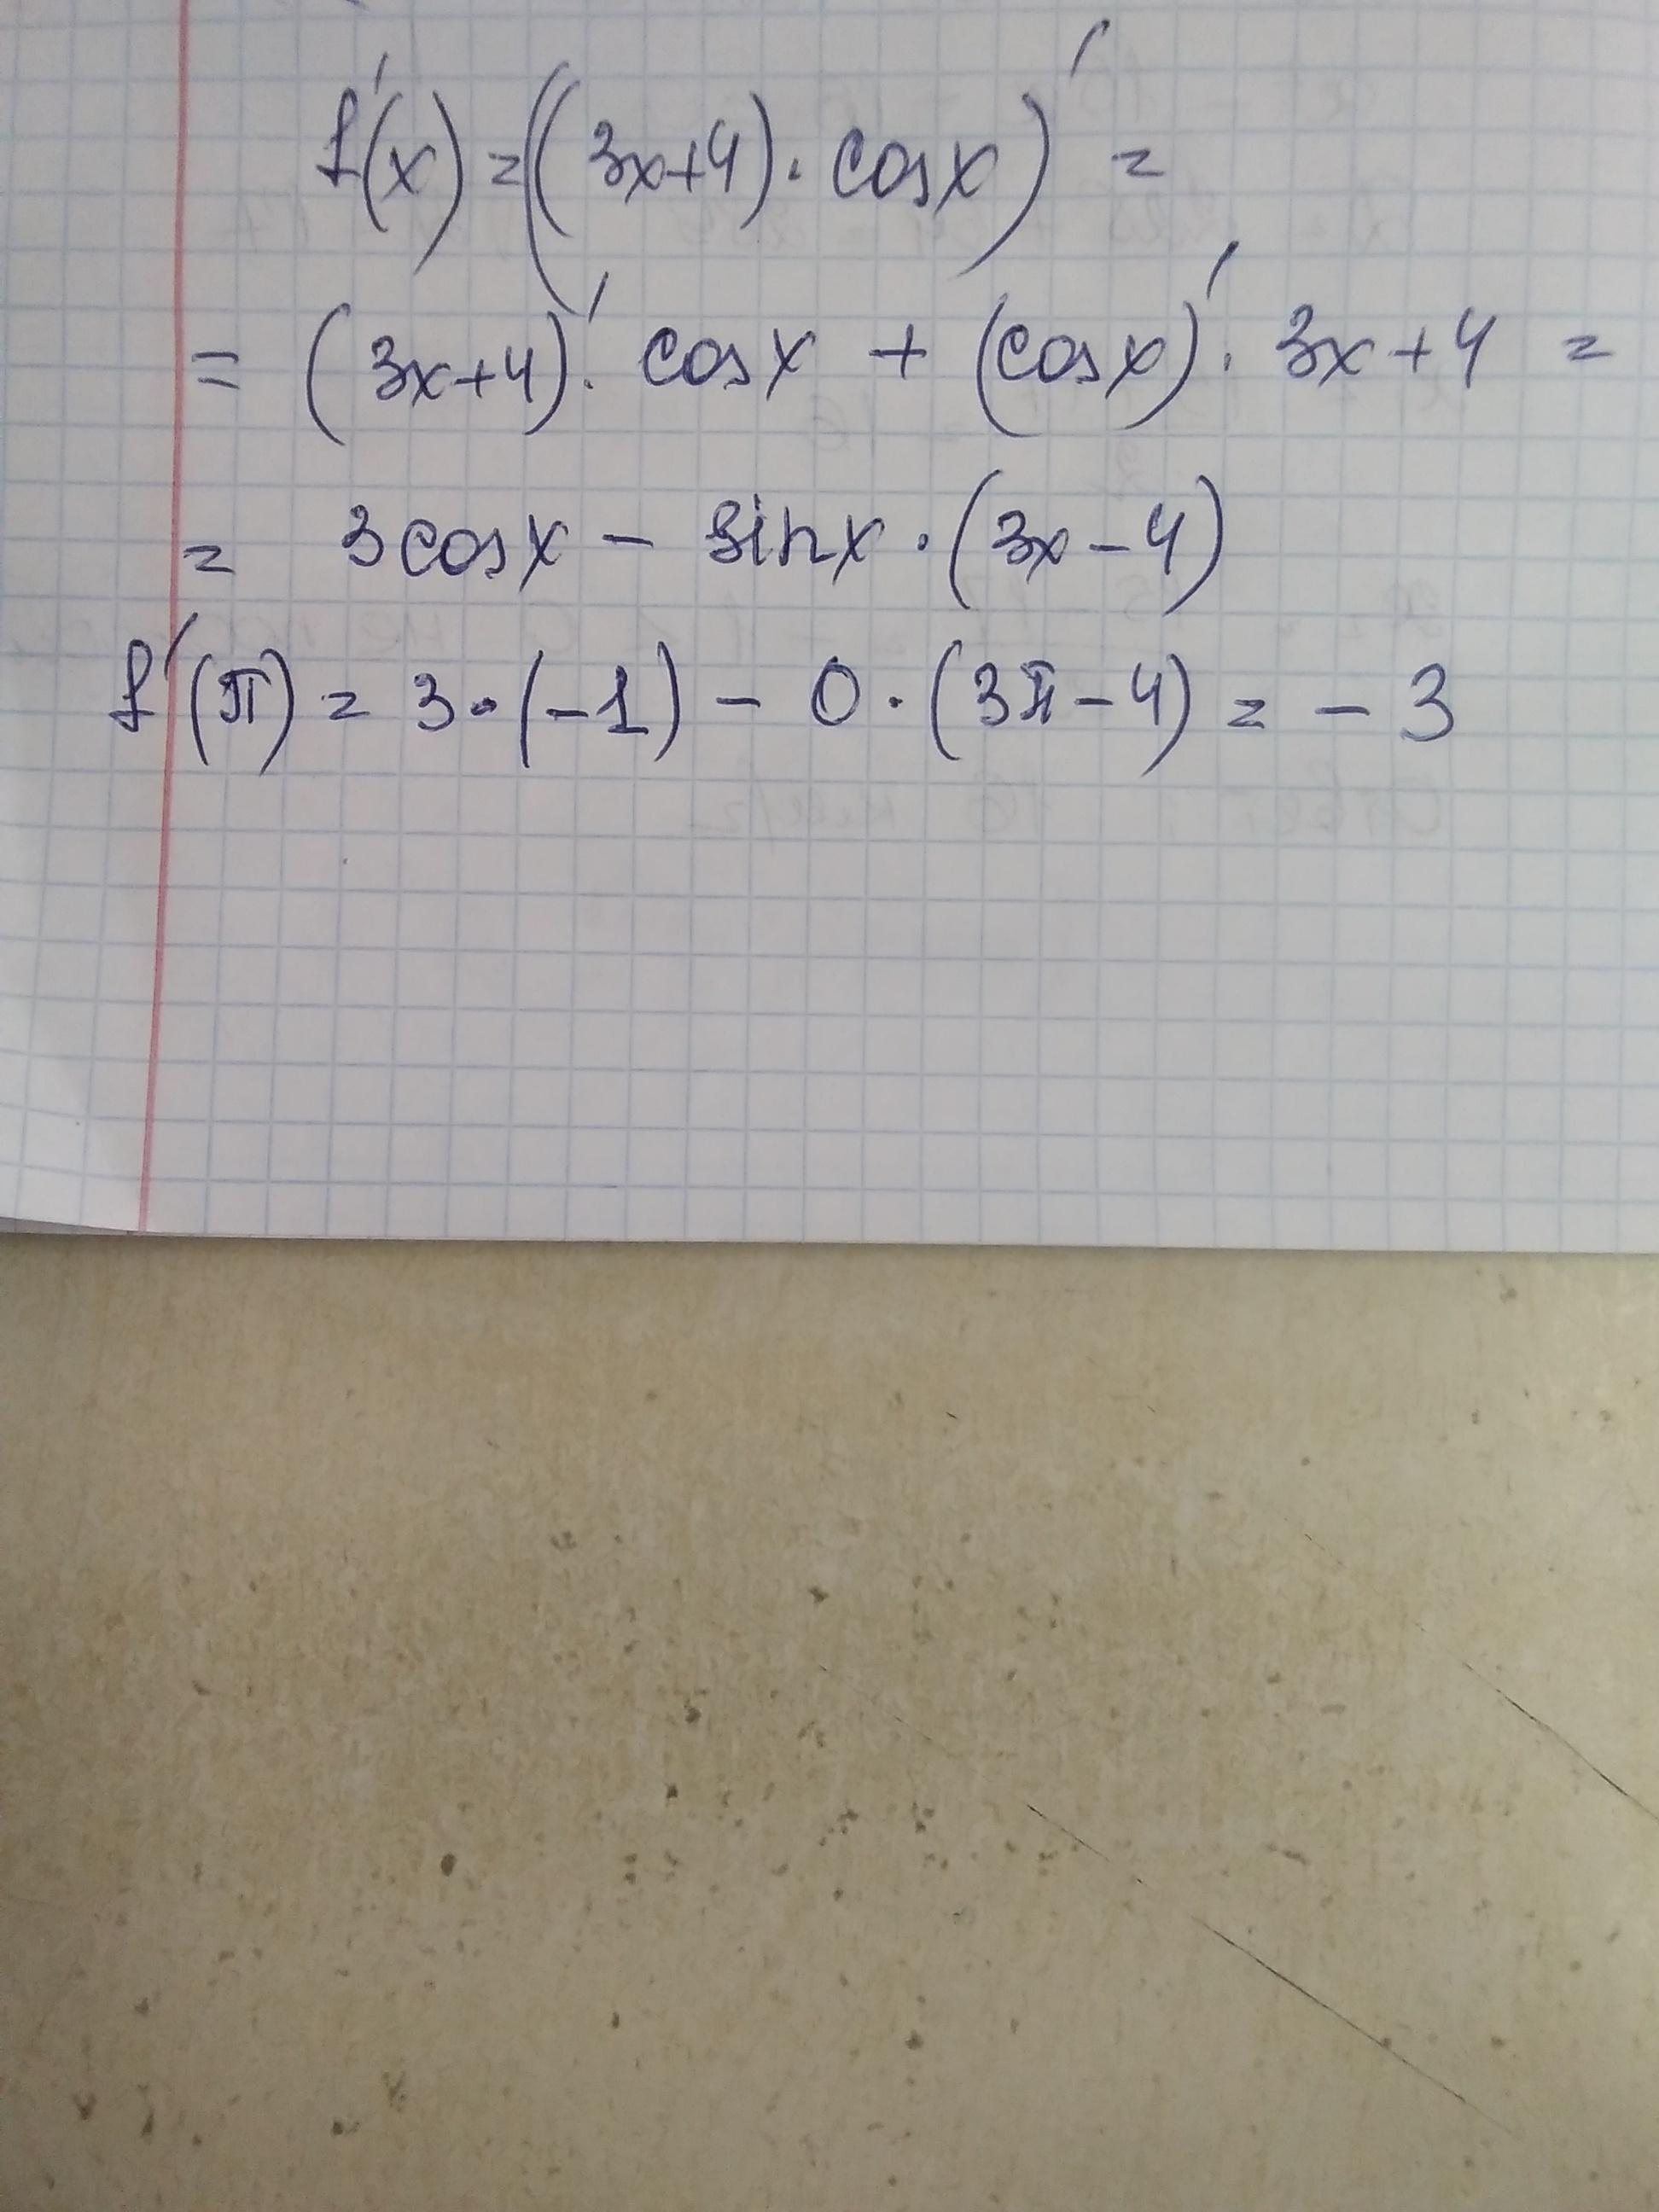 f'(x) = ((3x+4) · cosx)' =
= (3x+4)' · cosx + (cosx)' · 3x+4 =
= 3cosx - sinx · (3x-4)
f'(π) = 3 · (-1) - 0 · (3π-4) = -3